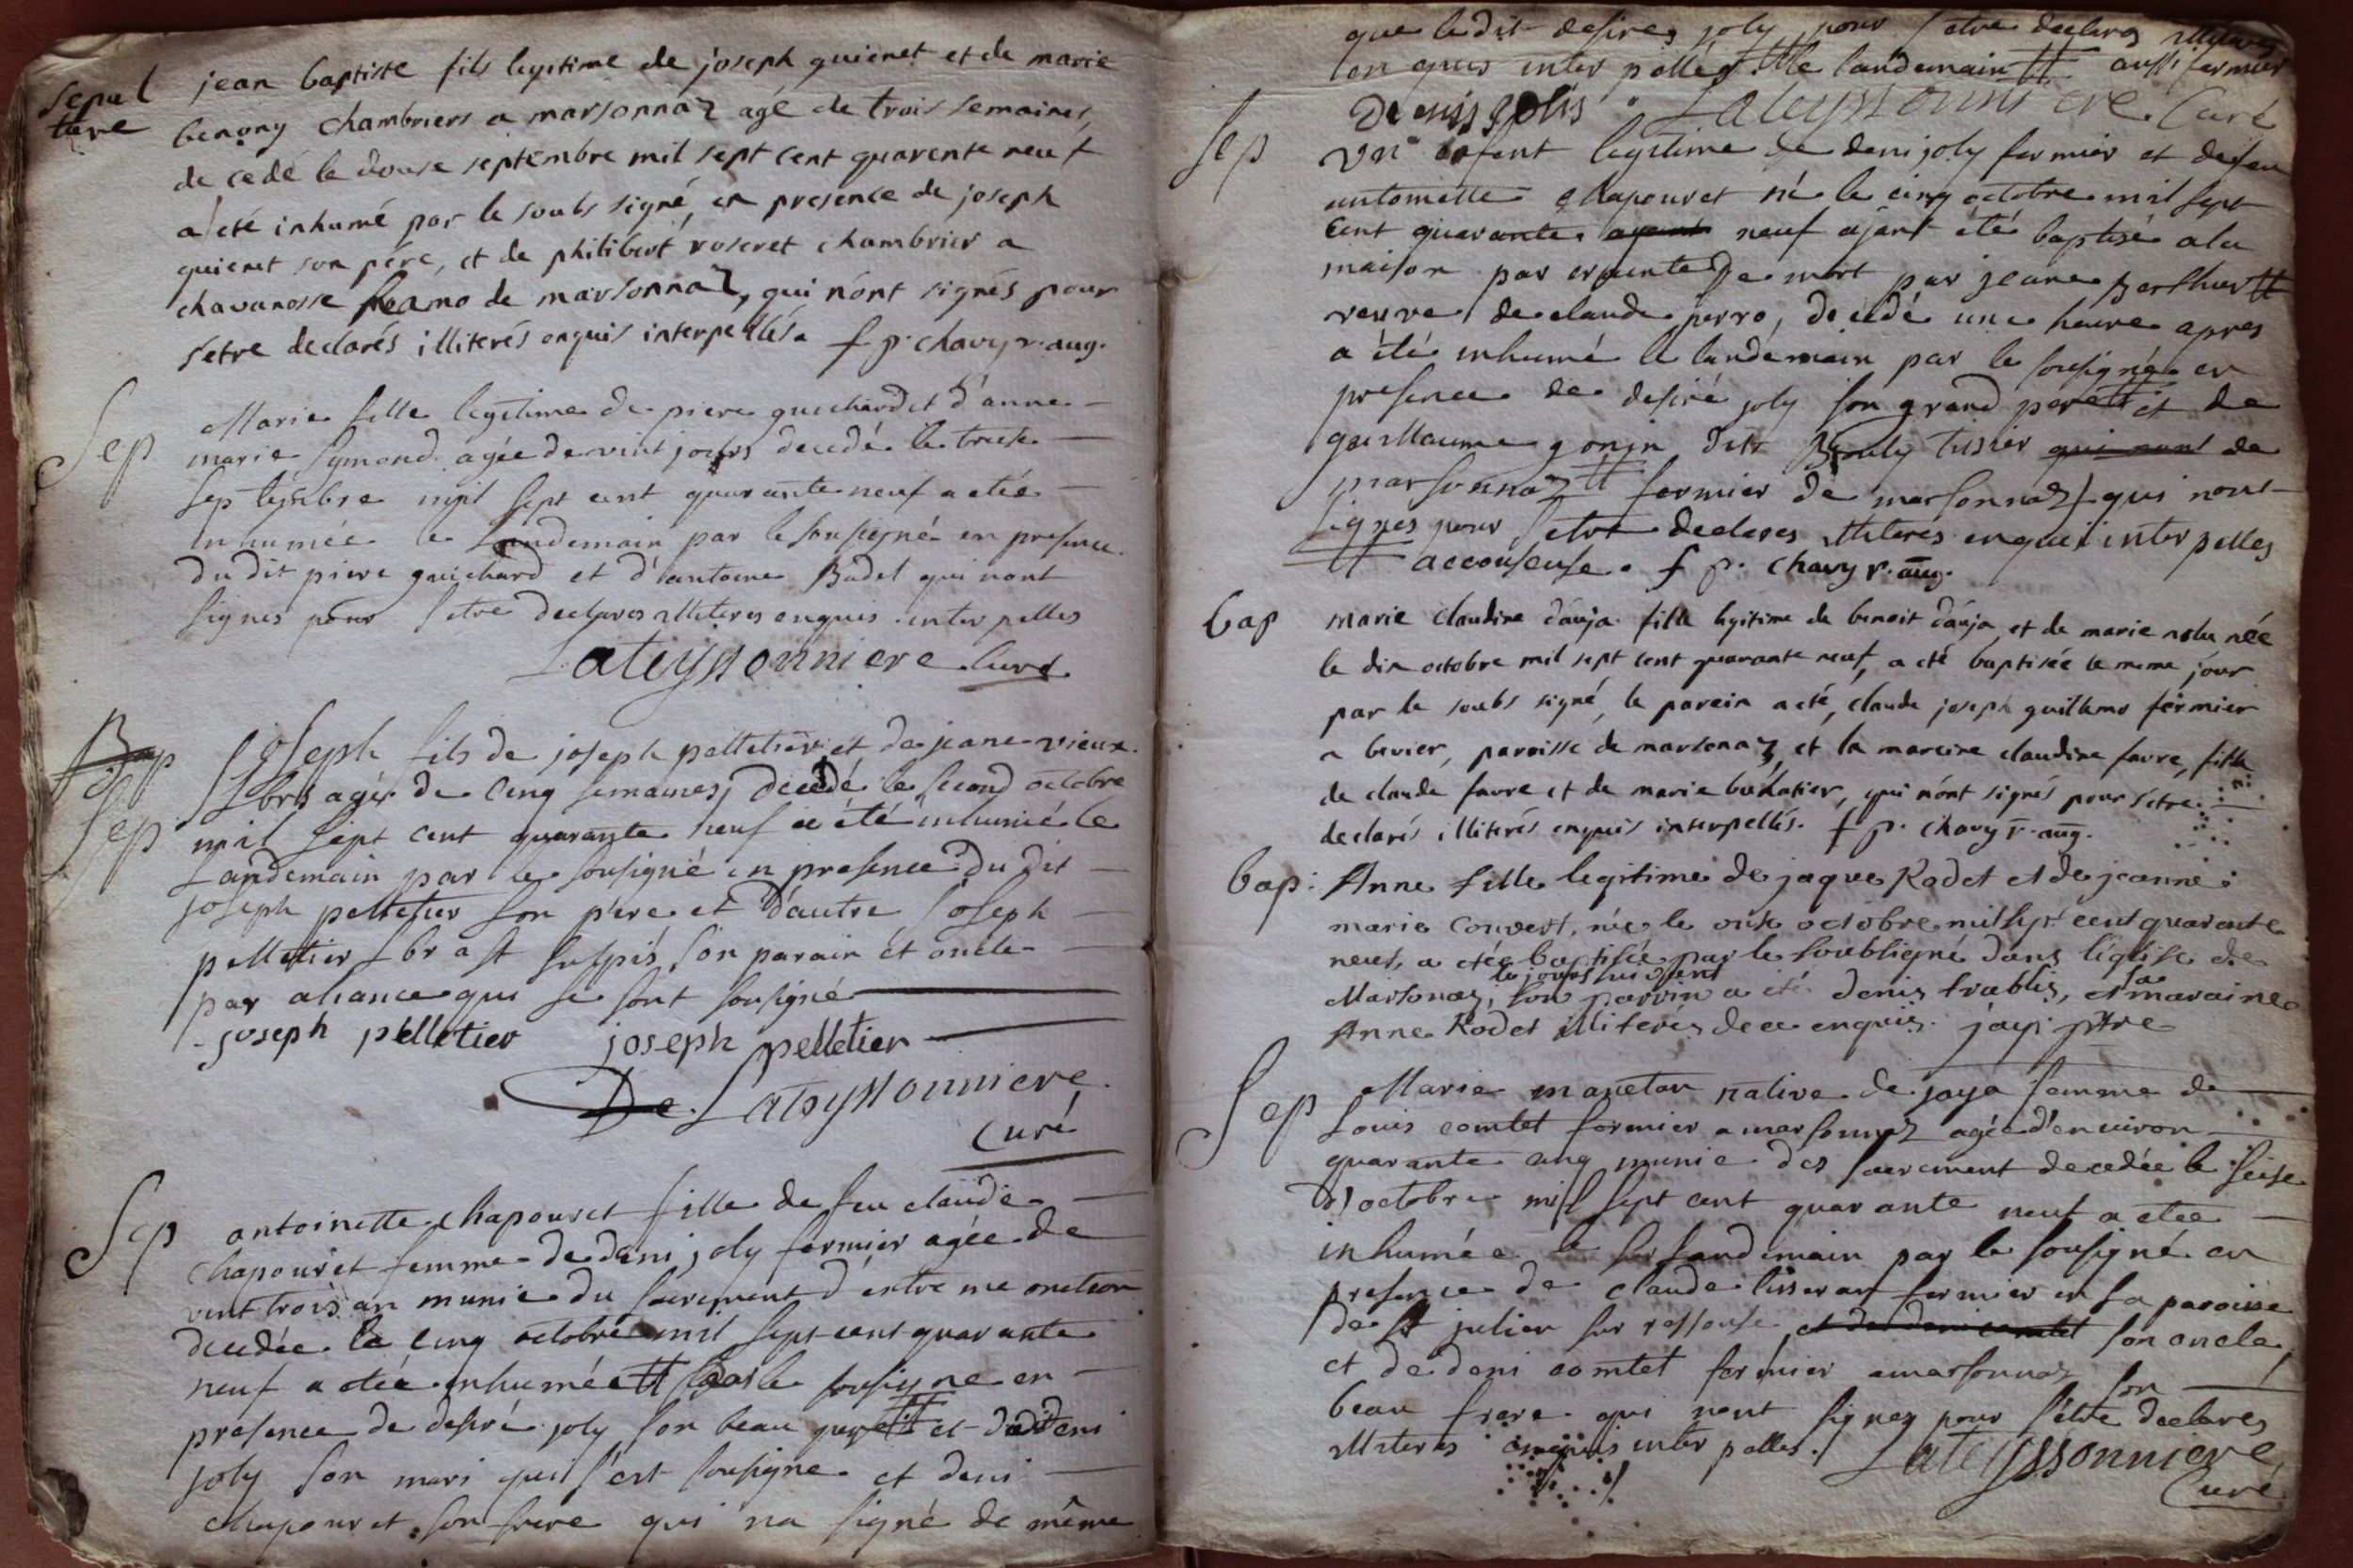 Sepul
ture
jean baptiste fils legitime de joseph guienet et de marie
benony chambriers a marsonnaz agé de trois semaines,
de cedé le douse septembre mil sept cent quarente neuf
a eté inhumé par le soubs signé, en presence de joseph
guienet son pére, et de philibert roseret chambrier a
chavanosse de marsonnaz, qui nónt signés pour
s'etre declarés illiterés enquis interpellés. f p. chavy r. aug.
Sep
Marie fille legitime de piere guichard et d'anne
marie symond agée de vint jours decedé le trese
septembre mil sept cent quarante neuf a etée
inhumée le landemain par le sousigné en presence
du dit piere guichard et d'antoine Badel qui nont
signes pour setre declares illiteres enquis interpelles
Lateyssonniere Curé
Bap
Sep
Joseph fils de joseph pelletier et de jeane vieux
agés de cinq semaines, decedé le second octobre
mil sept cent quarante neuf a été inhumé le
Landemain par le sousigné en presence du dit
joseph pelletier son pere et d'autre joseph
pelletier son parain et oncle
par aliance qui se sont sousigné
joseph pelletier joseph pelletier
De Lateyssonniere
Curé
Sep
antoinette chapouret fille de feu claude
chapouret femme de deni joly fermier agée de
vint trois an munie du sacrement d'extre me onction
decedée le cinq octobre mil sept cent quarante
neuf a etée inhumée # par le sousigne en
presence de desiré joly son beau pere # et du dit deni
joly son mari qui s'est sousigne et deni
chapouret son frere qui na signé de même
que le dit desire joly pour setre declares illiteres
en quis inter pellés. # le landemain # aussi fermier
Denis jolis Lateyssonniere Curé
Sep
un enfent legitime de deni joly fermier et defeu
antoinette chapouret né le cinq octobre mil sept
Cent quarante ayant neuf ajant été baptisé a la
maison par crainte de mort par jeane berthu #
veuve de claude perro, decedé une heure apres
a été inhumé le landemain par le sousigné en
presence de desiré joly son grand pere # et de
guillaume gonin dit tisier qui nont de
marsonnaz # fermier de marsonnaz qui nont
signes pour setre declares illiteres enquis interpelles
# accouseuse. f p. chavy r. aug.
bap
marie claudine dauja fille legitime de benoit dauja, et de marie née
le dix octobre mil sept cent quarante neuf, a eté baptisée le meme jour
par le soubs signé, le parein a eté, claude joseph guillemo fermier
a bevier, paroisse de marsonaz, et la mareine claudine favre, fille
de claude favre et de marie buhatier, qui nónt signés pour setre
declarés illiterés enquis interpellés. f p. chavy r. aug.
bap:
Anne fille legitime de jaque Rodet et de jeanne
marie Convert, née le onse octobre mil sept cent quarente
neuf, a etée baptisée par le soubsigné dans léglise de
le jour suivant
Marsonaz, son parrin a eté denis trablis, et sa maraine
Anne Rodet illiterés de ce enquis. jayr ptre
Sep
Marie maneton native de jaya femme de
Louis comtet fermier a marsonnaz agée d'environ
quarante cinq munie des sacrement decedée le seise
d'octobre mil sept cent quarante neuf a etée
inhumée le landemain par le sousigné en
presence de claude tisseran fermier en sa paroisse
de st julien sur ressouse et de deni comtet son oncle
et de deni comtet fermier a marsonnaz son
beau frere qui nont signez pour s'etre declares
illiteres enquis inter pelles. Lateyssonniere
Curé